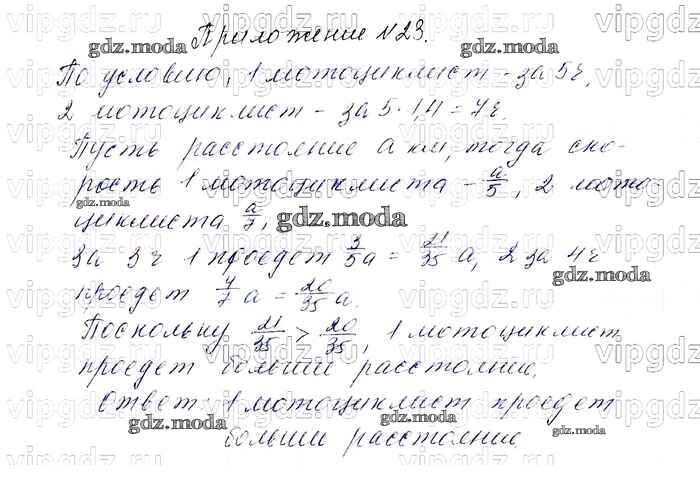 Приложение №23.
По условию, 1 мотоциклист - за 5ч,
2 мотоциклист - за 5·1,4=7ч.
Пусть расстояние a км, тогда ско-
рость 1 мотоциклиста - a/5, 2 мото
циклиста a/7,
За 3ч 1 проедет 3/5a = 21/35 a, 2 за 4ч
проедет 4/7 a = 20/35 a.
Поскольку 21/35 > 20/35, 1 мотоциклист
проедет больши расстояние.
Ответ: 1 мотоциклист проедет
больши расстояние
vipgdz.ru
gdz.moda